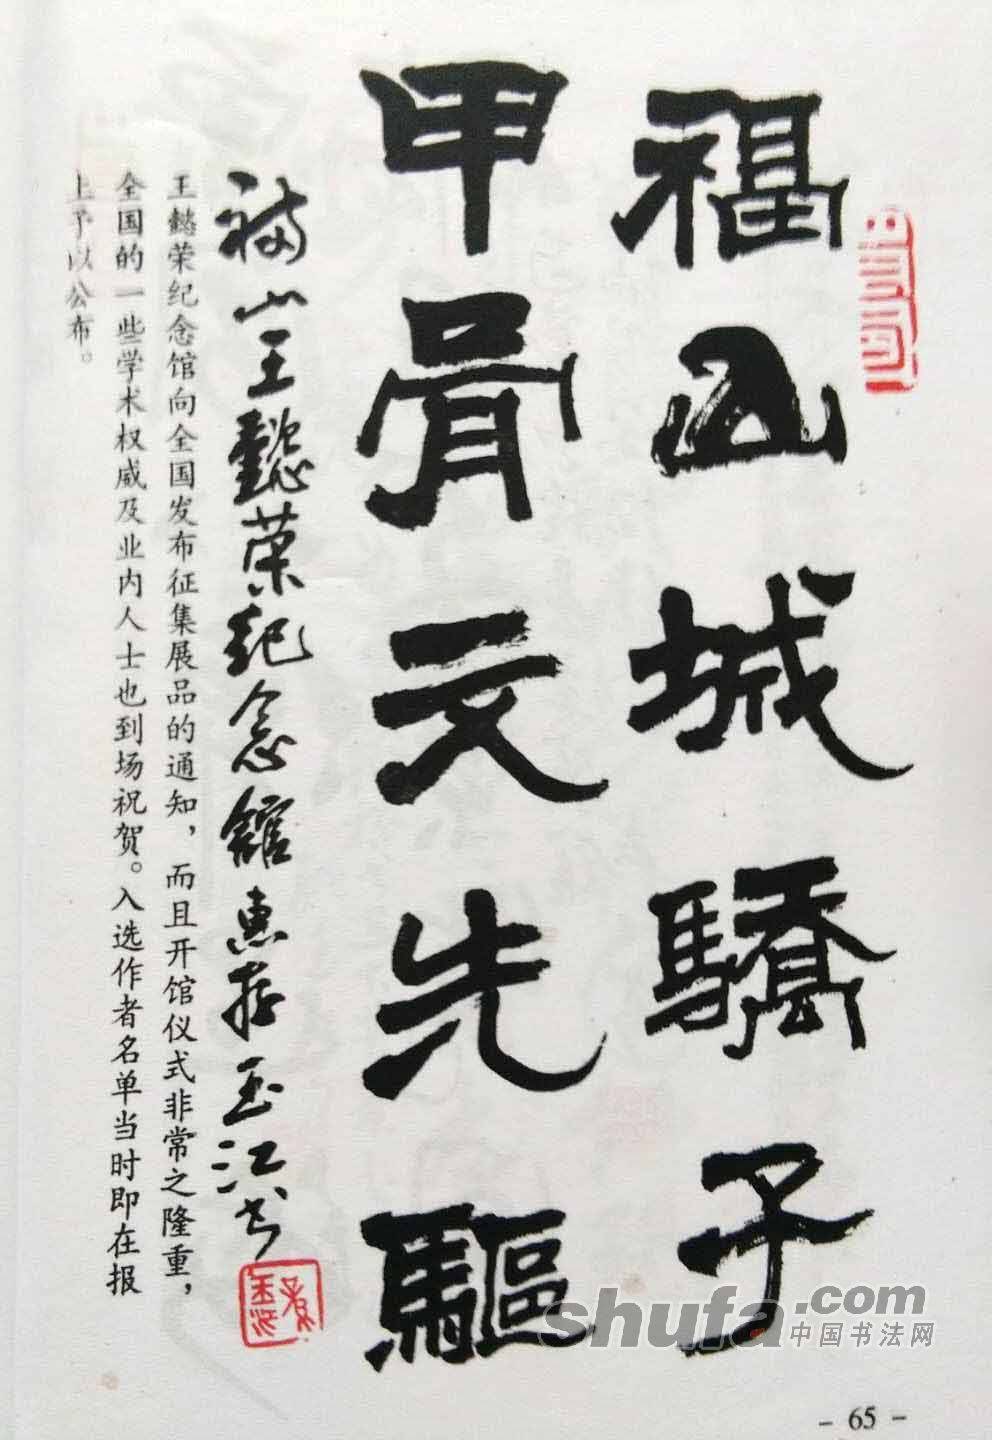 福山城驕子
甲骨文先驅
福山王懿荣纪念館惠存玉江书
王懿荣纪念馆向全国发布征集展品的通知，而且开馆仪式非常之隆重，
全国的一些学术权威及业内人士也到场祝贺。入选作者名单当时即在报
上予以公布。
shufa.com
中国书法网
- 65 -